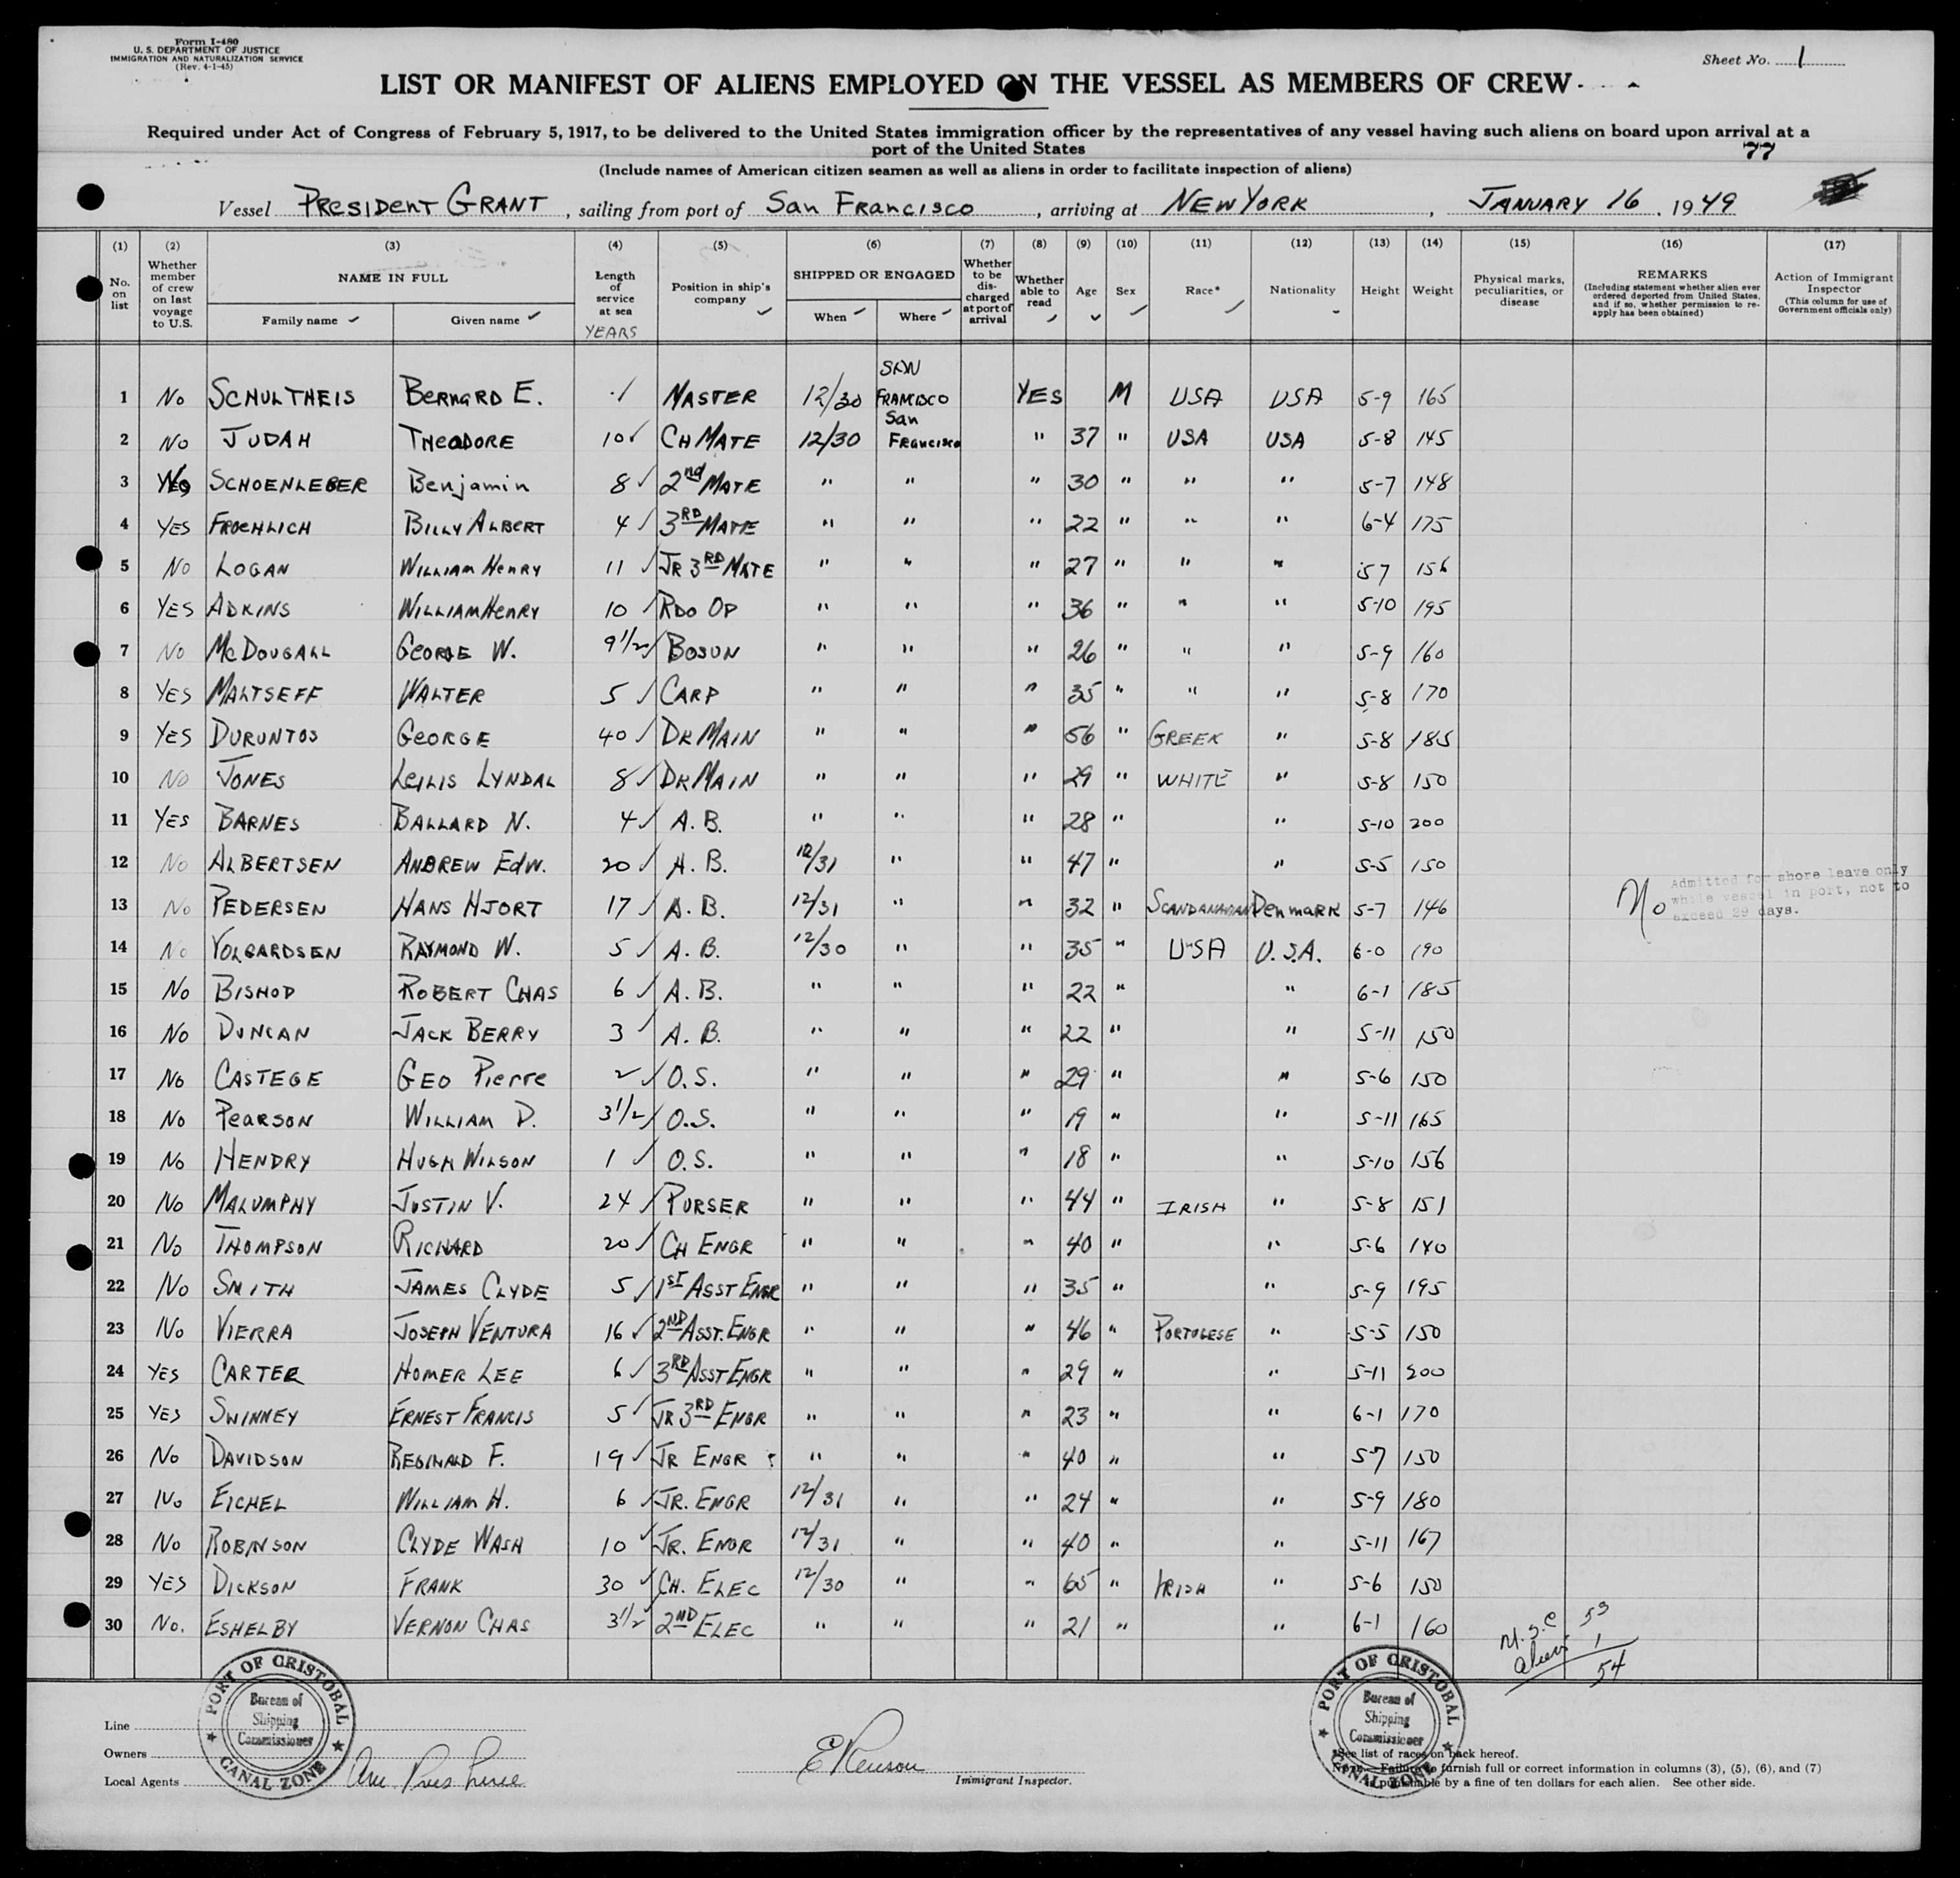 Form I-480
U. S. DEPARTMENT OF JUSTICE
IMMIGRATION AND NATURALIZATION SERVICE
(Rev. 4-1-45)
Sheet No. 1
LIST OR MANIFEST OF ALIENS EMPLOYED ON THE VESSEL AS MEMBERS OF CREW
Required under Act of Congress of February 5, 1917, to be delivered to the United States immigration officer by the representatives of any vessel having such aliens on board upon arrival at a
port of the United States
77
(Include names of American citizen seamen as well as aliens in order to facilitate inspection of aliens)
Vessel PRESIDENT GRANT, sailing from port of San Francisco, arriving at NEW YORK, JANUARY 16, 1949
(1) (2) (3) (4) (5) (6) (7) (8) (9) (10) (11) (12) (13) (14) (15) (16) (17)
No. on list
Whether member of crew on last voyage to U.S.
NAME IN FULL
Family name
Given name
Length of service at sea
YEARS
Position in ship's company
SHIPPED OR ENGAGED
When
Where
Whether to be discharged at port of arrival
Whether able to read
Age
Sex
Race*
Nationality
Height
Weight
Physical marks, peculiarities, or disease
REMARKS
(Including statement whether alien ever ordered deported from United States, and if so, whether permission to reapply has been obtained)
Action of Immigrant Inspector
(This column for use of Government officials only)
1 No SCHULTHEIS BERNARD E. MASTER 12/30 SAN FRANCISCO YES M USA USA 5-9 165
2 No JUDAH THEODORE 10 CH MATE 12/30 San Francisco " 37 " USA USA 5-8 145
3 SCHOENLEBER Benjamin 8 2nd MATE " " " 30 " " " 5-7 148
4 YES FROEHLICH BILLY ALBERT 4 3RD MATE " " " 22 " " " 6-4 175
5 No LOGAN WILLIAM HENRY 11 JR 3RD MATE " " " 27 " " " 57 156
6 YES ADKINS WILLIAM HENRY 10 RDO OP " " " 36 " " " 5-10 195
7 No McDOUGALL GEORGE W. 9 1/2 BOSUN " " " 26 " " " 5-9 160
8 YES MALTSEFF WALTER 5 CARP " " " 35 " " " 5-8 170
9 YES DURUNTOS GEORGE 40 DK MAIN " " " 56 " GREEK " 5-8 185
10 No JONES LESLIS LYNDAL 8 DK MAIN " " " 29 " WHITE " 5-8 150
11 YES BARNES BALLARD N. 4 A.B. " " " 28 " " 5-10 200
12 No ALBERTSEN ANDREW EDW. 20 A.B. 12/31 " " 47 " " 5-5 150
13 No PEDERSEN HANS HJORT 17 A.B. 12/31 " " 32 " SCANDANAVIAN Denmark 5-7 146 No
Admitted for shore leave only
while vessel in port, not to
exceed 29 days.
14 No VOLGARDSEN RAYMOND W. 5 A.B. 12/30 " " 35 " USA U.S.A. 6-0 190
15 No BISHOP ROBERT CHAS 6 A.B. " " " 22 " " 6-1 185
16 No DUNCAN JACK BERRY 3 A.B. " " " 22 " " 5-11 150
17 No CASTEGE GEO Pierre 2 O.S. " " " 29 " " 5-6 150
18 No PEARSON WILLIAM D. 3 1/2 O.S. " " " 19 " " 5-11 165
19 No HENDRY HUGH WILSON 1 O.S. " " " 18 " " 5-10 156
20 No MALUMPHY JUSTIN V. 24 PURSER " " " 44 " IRISH " 5-8 151
21 No THOMPSON RICHARD 20 CH ENGR " " " 40 " " 5-6 140
22 No SMITH JAMES CLYDE 5 1ST ASST ENGR " " " 35 " " 5-9 195
23 No VIERRA JOSEPH VENTURA 16 2ND ASST. ENGR " " " 46 " PORTUGESE " 5-5 150
24 YES CARTER HOMER LEE 6 3RD ASST ENGR " " " 29 " " 5-11 200
25 YES SWINNEY ERNEST FRANCIS 5 JR 3RD ENGR " " " 23 " " 6-1 170
26 No DAVIDSON REGINALD F. 19 JR ENGR " " " 40 " " 5-7 150
27 No EICHEL WILLIAM H. 6 JR. ENGR 12/31 " " 24 " " 5-9 180
28 No ROBINSON CLYDE WASH 10 JR. ENGR 12/31 " " 40 " " 5-11 167
29 YES DICKSON FRANK 30 CH. ELEC 12/30 " " 65 " IRISH " 5-6 150
30 No. ESHELBY VERNON CHAS 3 1/2 2ND ELEC " " " 21 " " 6-1 160
U.S.C 53
Alien 1
54
PORT OF CRISTOBAL
Bureau of
Shipping
Commissioner
CANAL ZONE
PORT OF CRISTOBAL
Bureau of
Shipping
Commissioner
CANAL ZONE
Line
Owners
Local Agents Am Pres Lines
Immigrant Inspector.
*See list of races on back hereof.
NOTE.—Failure to furnish full or correct information in columns (3), (5), (6), and (7)
is punishable by a fine of ten dollars for each alien. See other side.